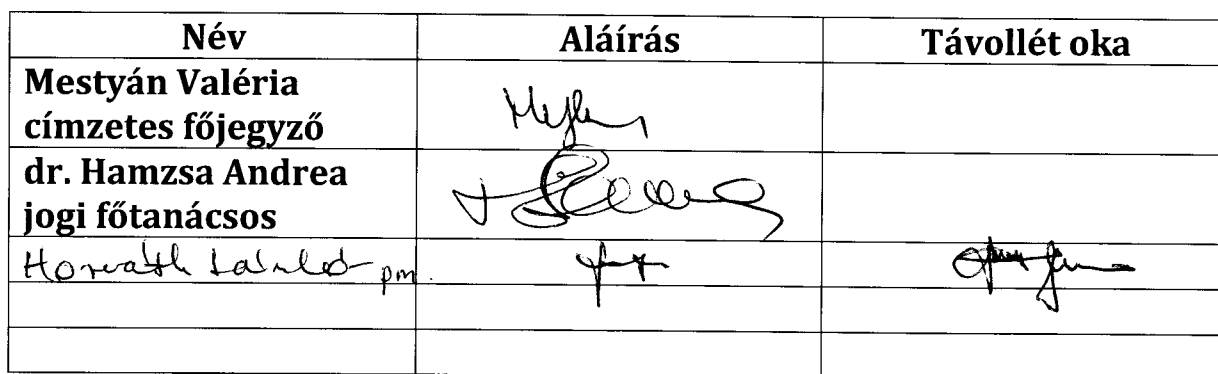 Név Aláírás Távollét oka
Mestyán Valéria
címzetes főjegyző
dr. Hamzsa Andrea
jogi főtanácsos
Horváth László pm.